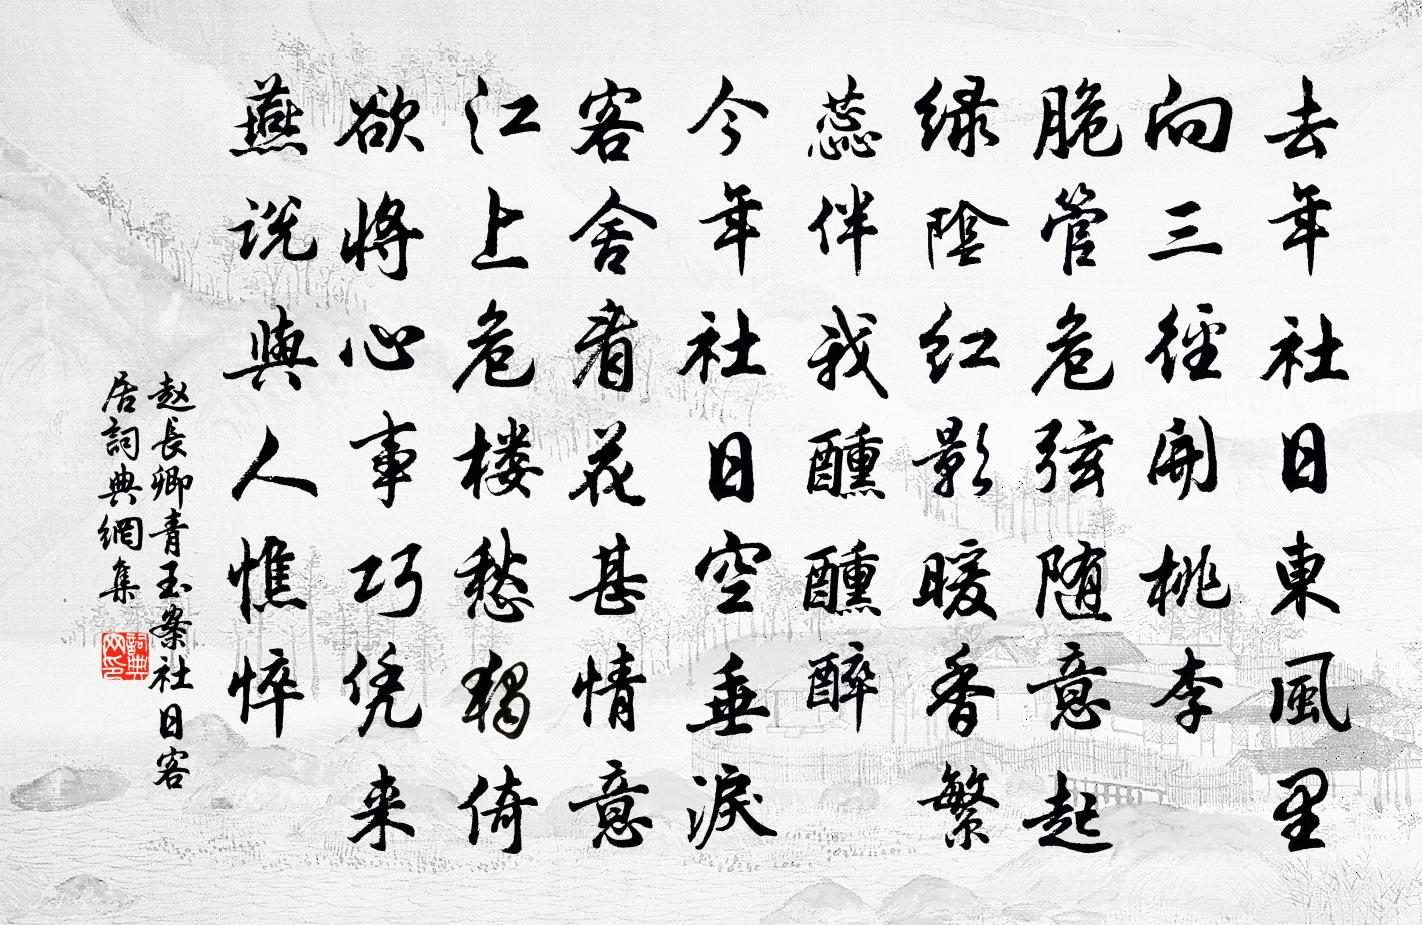 去年社日東風里
向三徑開桃李
脆管危弦随意起
绿陰红影暖香繁
蕊伴我醺醺醉
今年社日空垂淚
客舍看花甚情意
江上危楼愁獨倚
欲將心事巧凭来
燕说與人憔悴
赵長卿青玉案社日客
居詞典網集